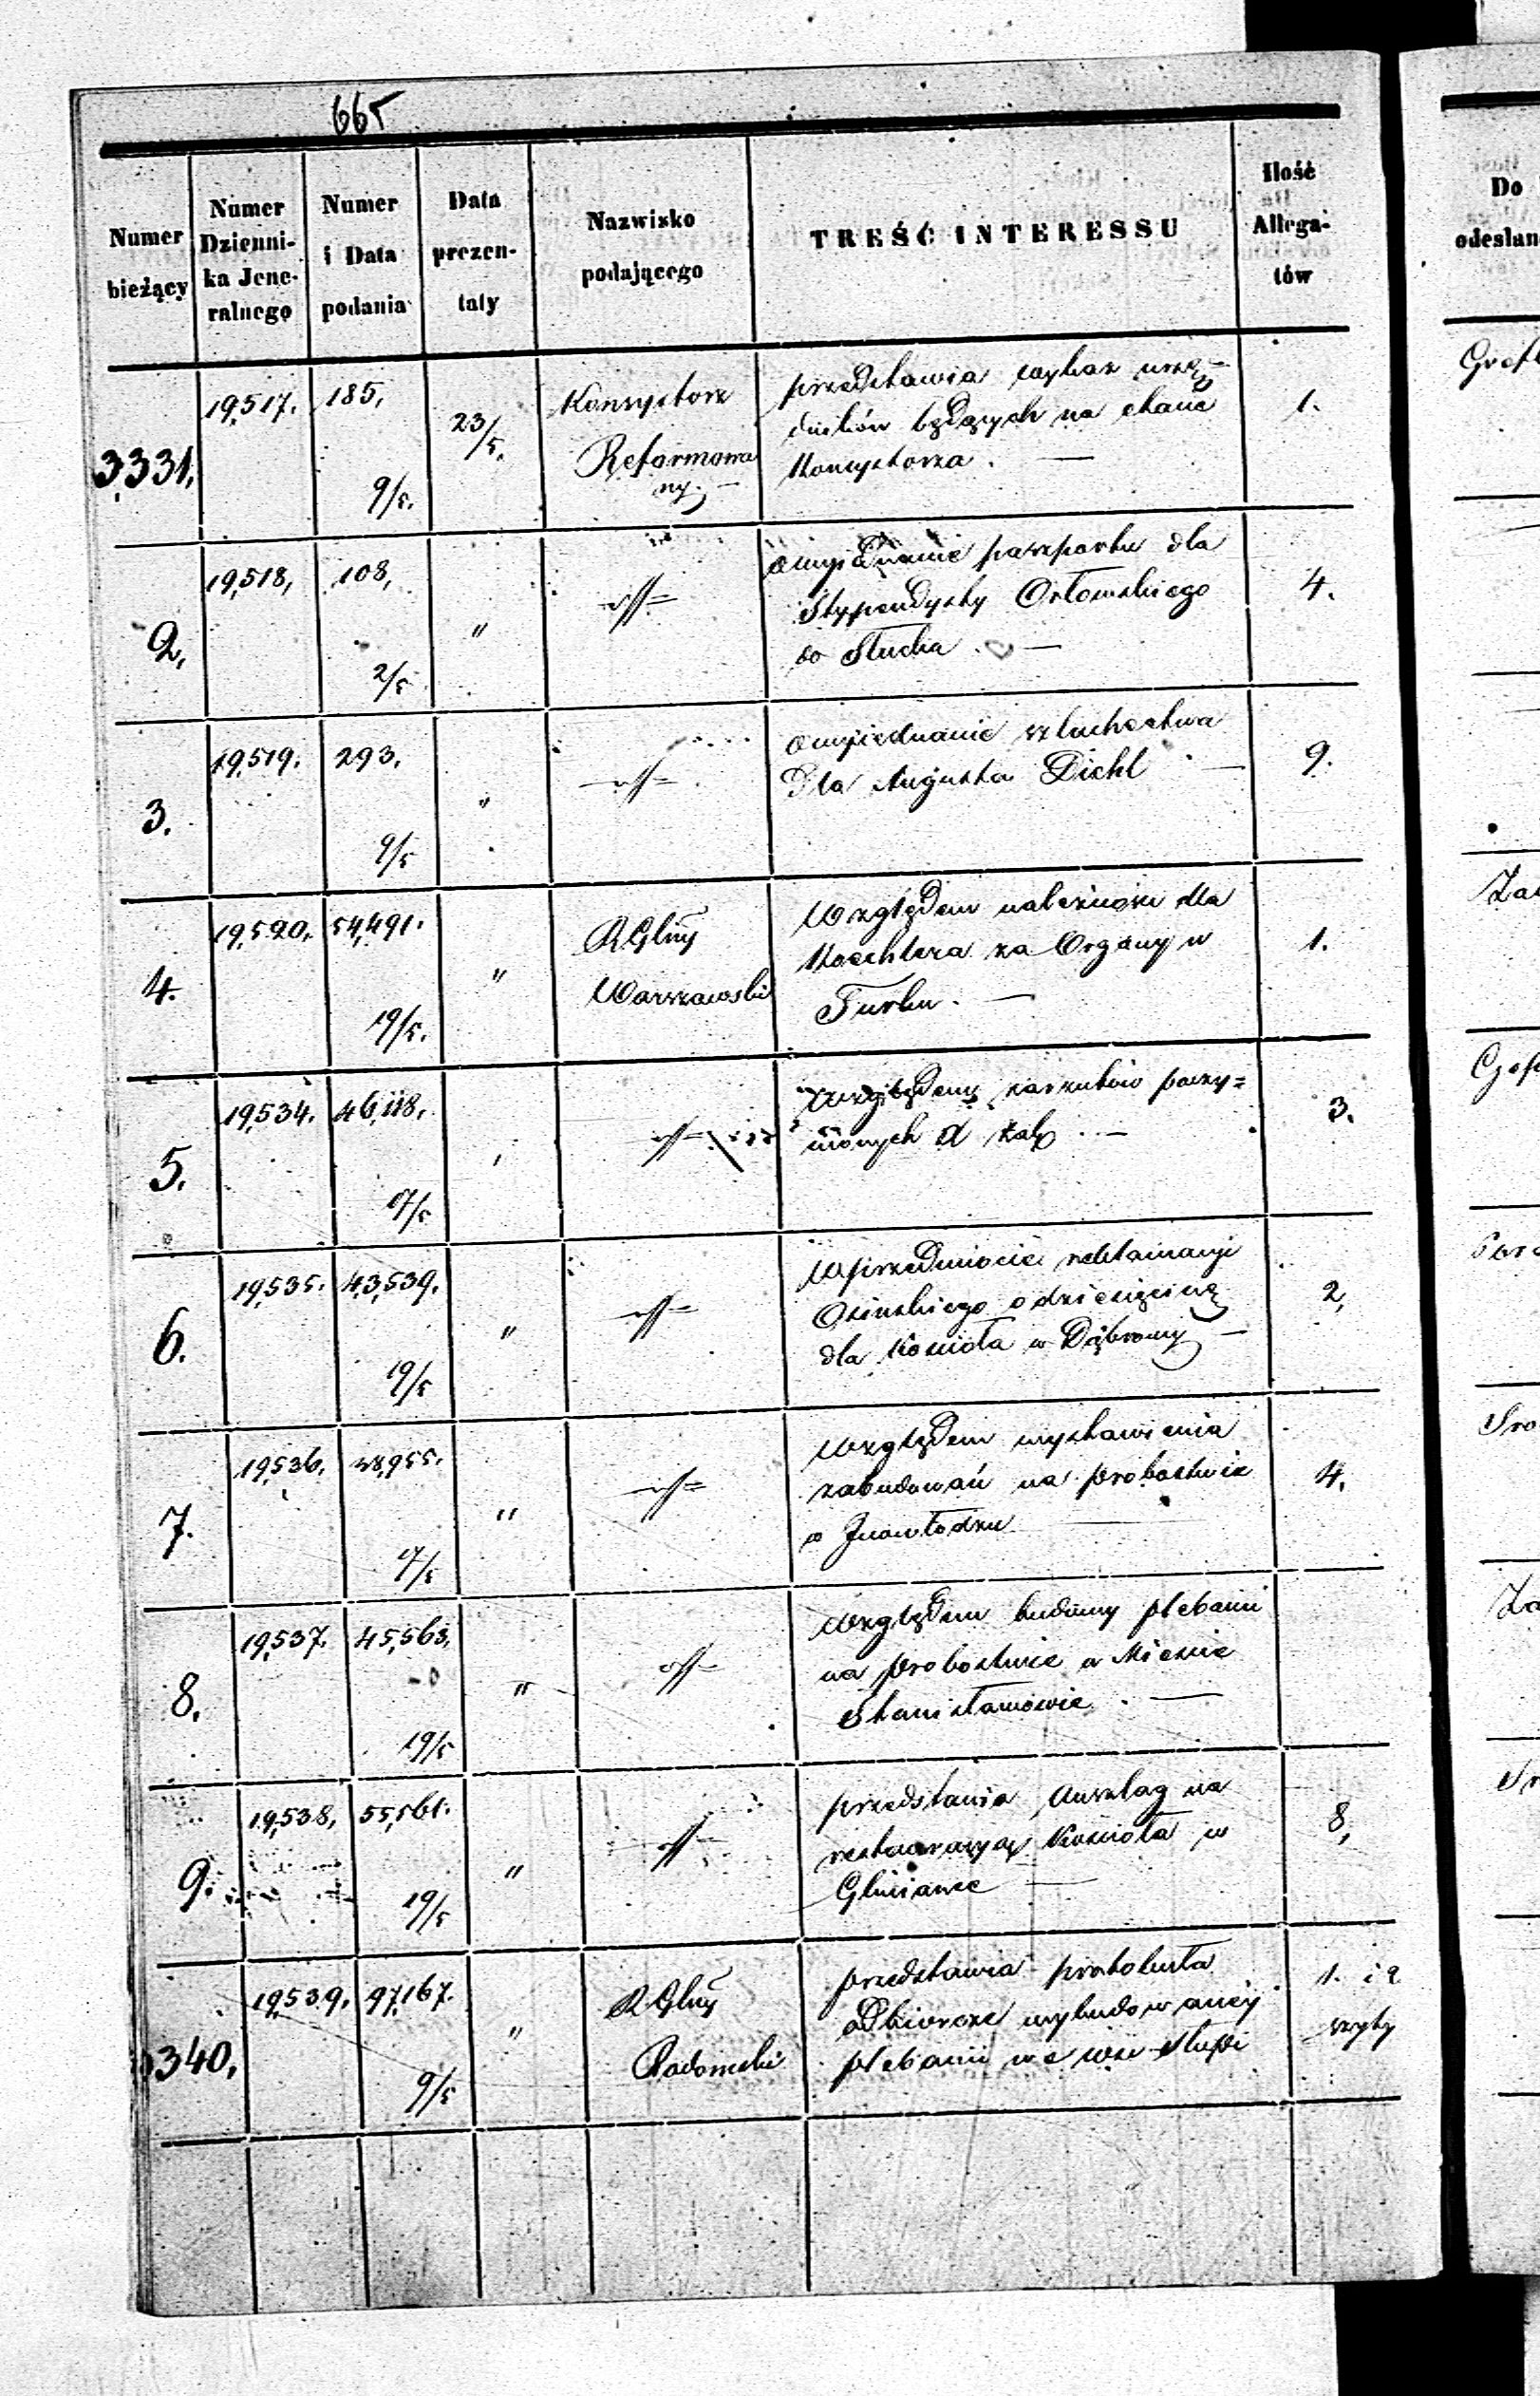 665
Numer bieżący
Numer Dzienni-ka Jene-ralnego
Numer i Data podania
Data prezen-taty
Nazwisko podającego
TREŚĆ INTERESSU
Ilość Allega-tów
3,331. 19,517. 185, 9/5. 23/5. Konsystorz Reformowa ny.
przedstawia wykaz urzę-
dników będących na etacie
Konsystorza. —
1.
2. 19,518, 108, 2/5 "
o wyjednanie paszportu dla
Stypendysty Orłowskiego
do Słucka. —
4.
3. 19,519. 293. 9/5 "
o wyjednanie szlachectwa
Dla Augusta Diehl —
9.
4. 19,520. 54,491. 19/5. " RGlny Warszawski
Względem należności dla
za Organy w
Turku. —
1.
5. 19,534. 46,118. 17/5
Względem zarzutów poczy=
nionych —
3.
6. 19,535. 43,539. 19/5 "
W przedmiocie reklamacyi
Osinskiego o dziesięcinę
dla Kościoła w Dąbrowy —
2,
7. 19,536. 17/5 "
Względem wystawienia
zabudowań na probostwie
w Inowłodzu
4.
8. 19,537. 45,563. 19/5 "
Względem budowy plebanii
na probostwie w Mieście
Stanisławowie. —
9. 19,538, 55,561. 19/5 "
przedstawia Anszlag na
restauracyą Kościoła w
Gliniance —
8,
3340. 19,539. 97,167. 9/5 " RGlny Radomski
przedstawia protokuła
odbiorcze wybudowanéj
plebanii we wsi Słupi
1. i 2
szyty
Do
odesłan